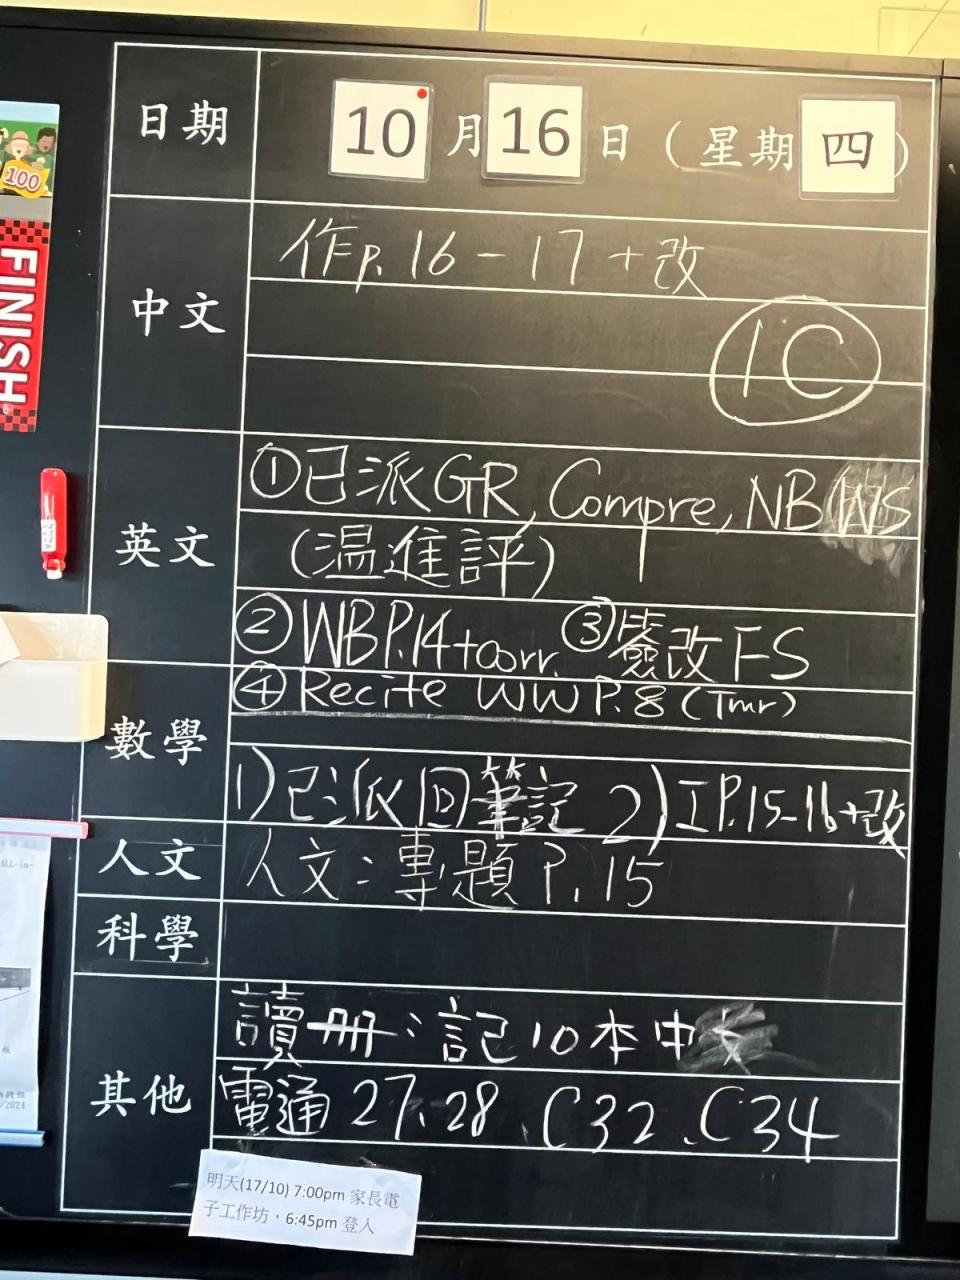 日期 10 月 16 日 (星期 四)
中文 作p.16-17+改
1C
英文 ①已派GR, Compre, NB WS
(溫進評)
②WBP.14+corr. ③簽改FS
④Recite WW P.8 (Tmr)
數學 1)已派回筆記 2)工P.15-16+改
人文 人文:專題P.15
科學
其他 讀冊:記10本中
電通27、28、C32、C34
明天(17/10) 7:00pm 家長電
子工作坊,6:45pm 登入
100
FINISH